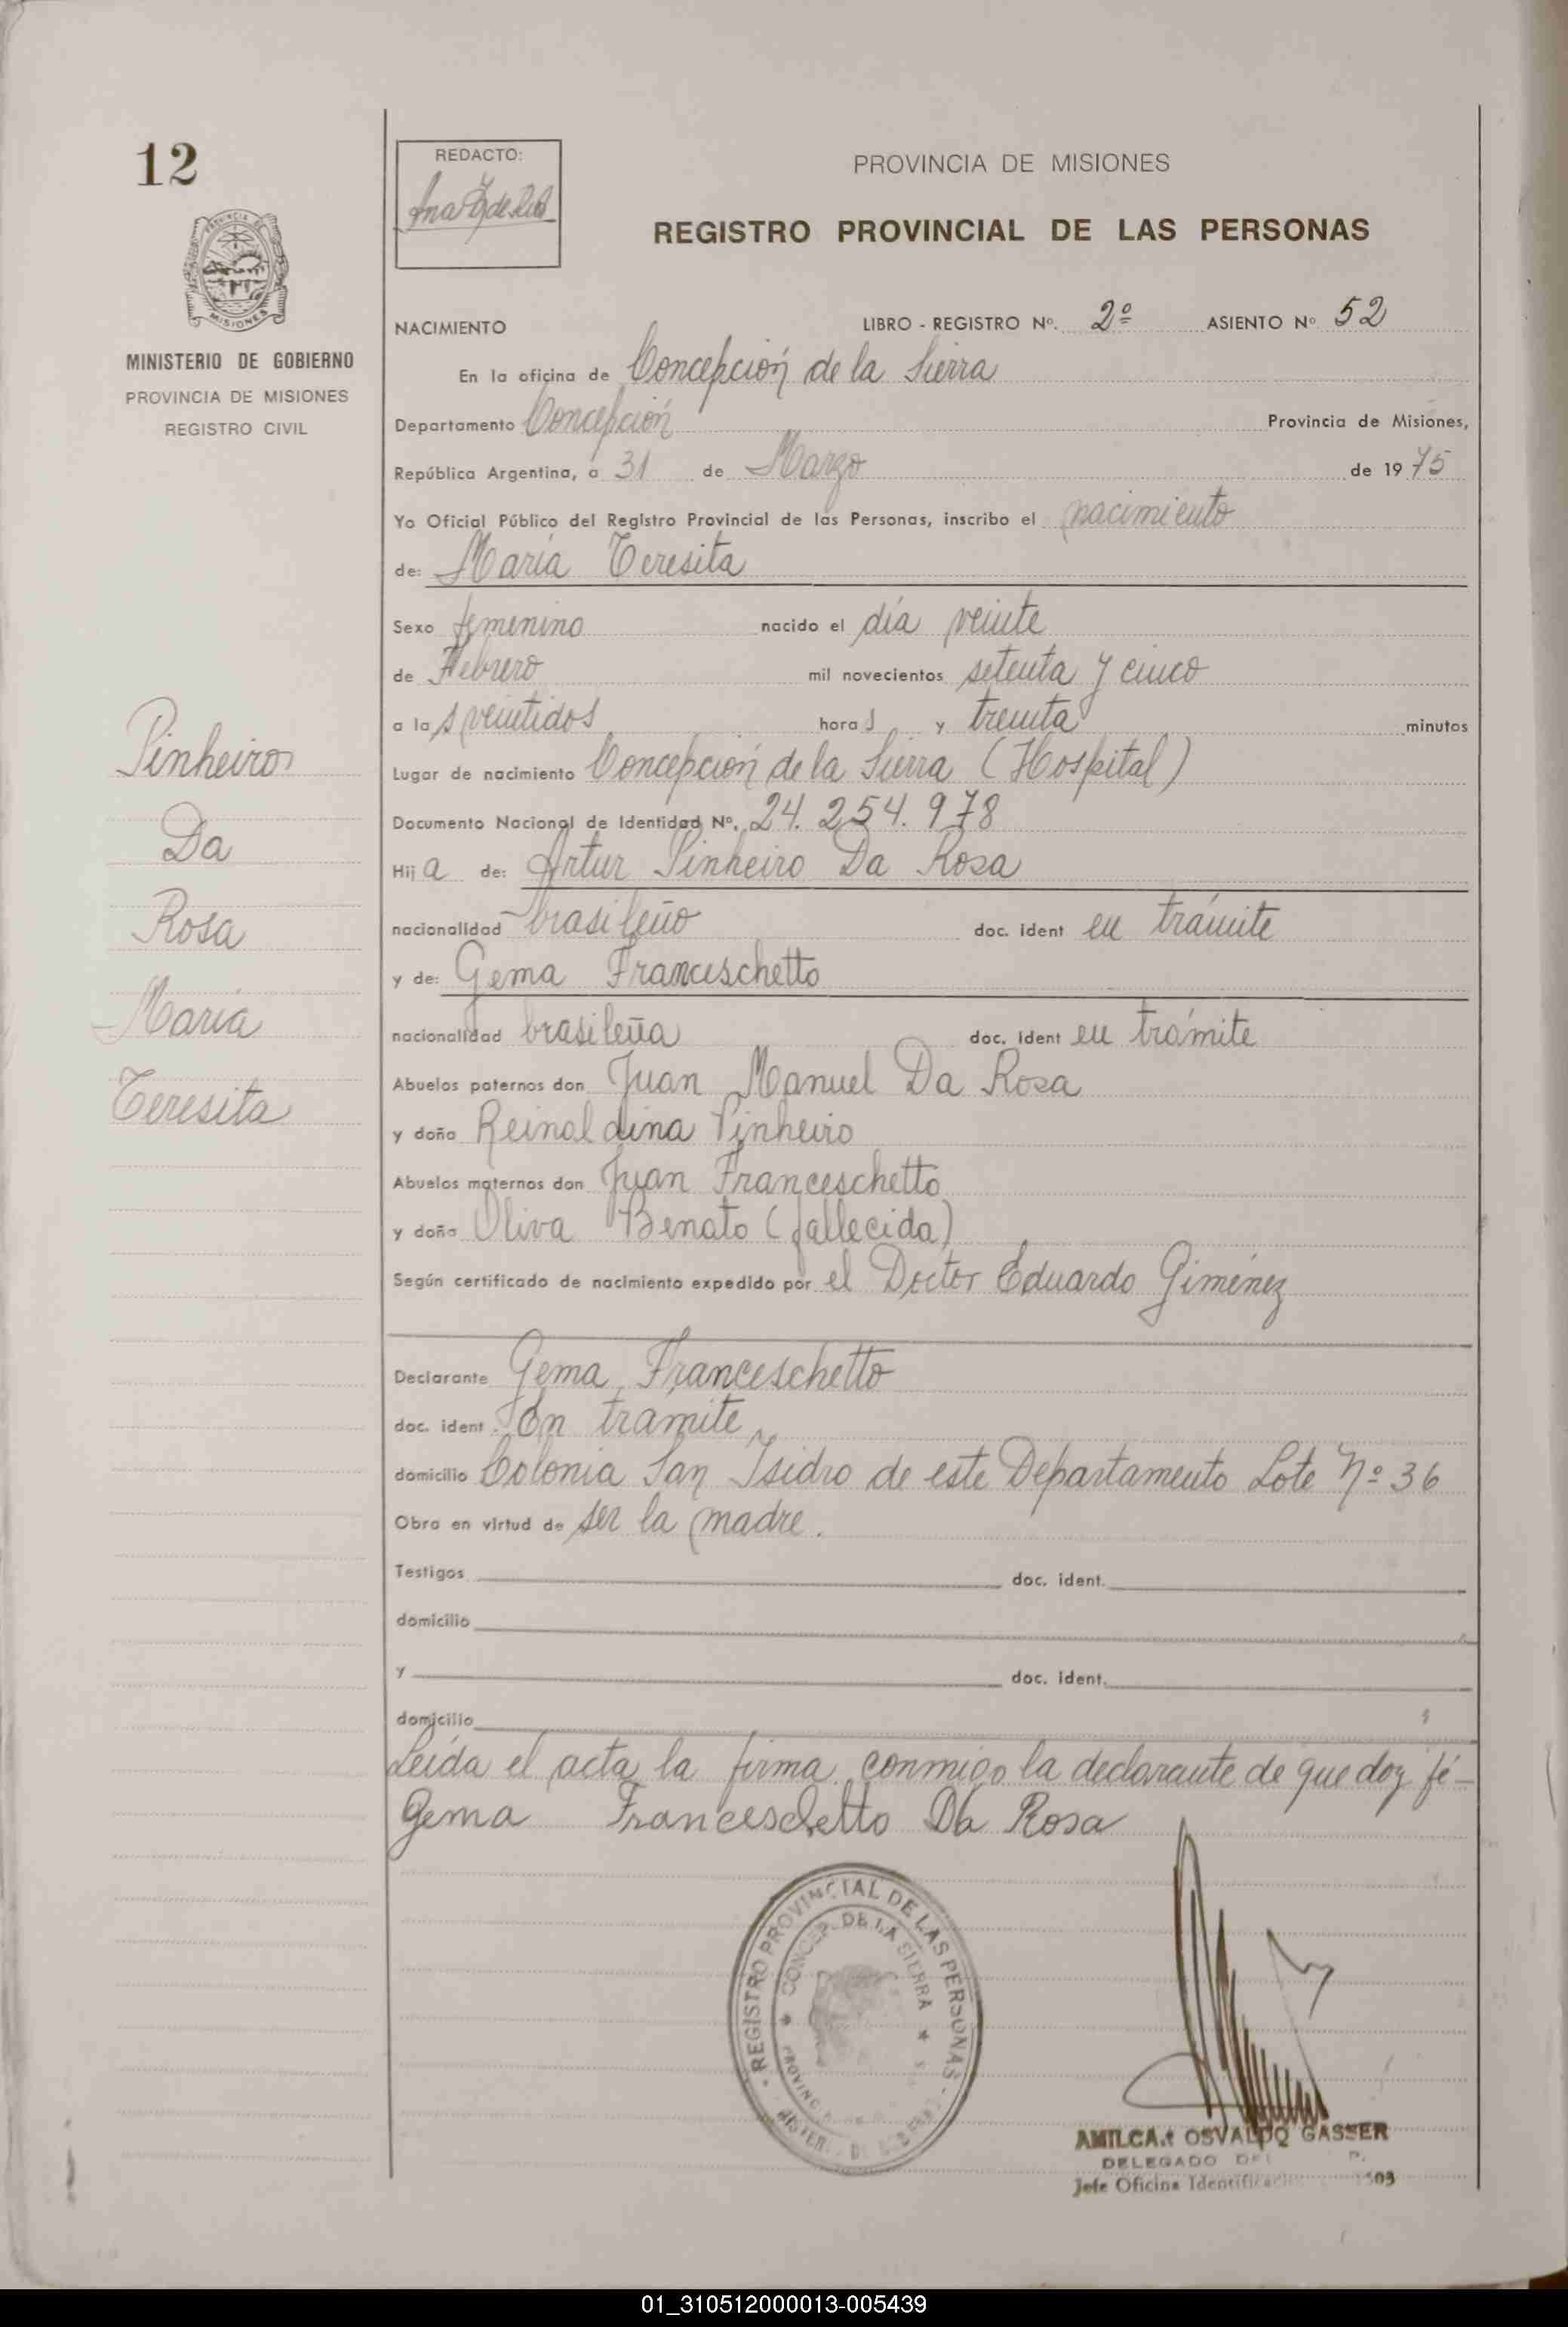 12
REDACTO:
PROVINCIA DE MISIONES
REGISTRO PROVINCIAL DE LAS PERSONAS
MISIONES
MINISTERIO DE GOBIERNO
PROVINCIA DE MISIONES
REGISTRO CIVIL
NACIMIENTO LIBRO - REGISTRO Nº. 2º ASIENTO Nº 52
En la oficina de Concepción de la Sierra
Departamento Concepción Provincia de Misiones,
República Argentina, a 31 de Marzo de 1975
Yo Oficial Público del Registro Provincial de las Personas, inscribo el nacimiento
de: María Teresita
Sexo femenino nacido el día veinte
de Febrero mil novecientos setenta y cinco
a las veintidos horas y treinta minutos
Lugar de nacimiento Concepción de la Sierra (Hospital)
Documento Nacional de Identidad Nº. 24.254.978
Hija de: Artur Pinheiro Da Rosa
nacionalidad brasileño doc. ident en trámite
y de: Gema Franceschetto
nacionalidad brasileña doc. ident en trámite
Abuelos paternos don Juan Manuel Da Rosa
y doña Reinaldina Pinheiro
Abuelos maternos don Juan Franceschetto
y doña Oliva Benato (fallecida)
Según certificado de nacimiento expedido por el Doctor Eduardo Giménez
Declarante Gema Franceschetto
doc. ident. En tramite
domicilio Colonia San Isidro de este Departamento Lote Nº 36
Obra en virtud de ser la madre.
Testigos doc. ident.
domicilio
y doc. ident.
domicilio
Leída el acta la firma conmigo la declarante de que doy fé-
Gema Franceschetto Da Rosa
Pinheiro
Da
Rosa
María
Teresita
REGISTRO PROVINCIAL DE LAS PERSONAS
CONCEP. DE LA SIERRA
AMILCAR OSVALDO GASSER
DELEGADO
Jefe Oficina
01_310512000013-005439